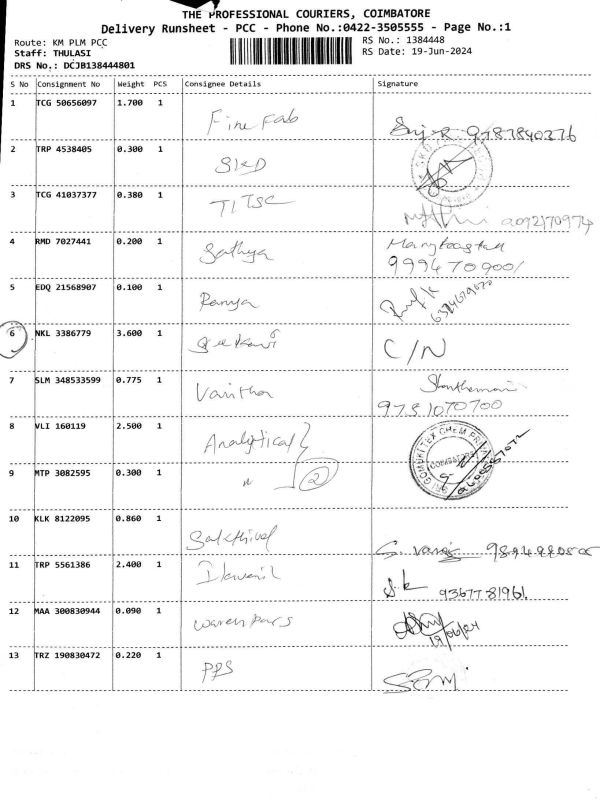 THE PROFESSIONAL COURIERS, COIMBATORE
Delivery Runsheet - PCC - Phone No.:0422-3505555 - Page No.:1
Route: KM PLM PCC
Staff: THULASI
DRS No.: DCJB138444801
RS No.: 1384448
RS Date: 19-Jun-2024
S No Consignment No Weight PCS Consignee Details Signature
1 TCG 50656097 1.700 1 Fine Fab 9787840276
2 TRP 4538405 0.300 1 SKD
3 TCG 41037377 0.380 1 TITSC 9092170974
4 RMD 7027441 0.200 1 Sathya
9994709001
5 EDQ 21568907 0.100 1 Ramya
6 NKL 3386779 3.600 1 C/N
7 SLM 348533599 0.775 1 Vanitha
9751070700
8 VLI 160119 2.500 1 Analytical
9 MTP 3082595 0.300 1 " 2
10 KLK 8122095 0.860 1 Sakthivel
11 TRP 5561386 2.400 1 S.K 9367781961
12 MAA 300830944 0.090 1 19/06/24
13 TRZ 190830472 0.220 1 PPS